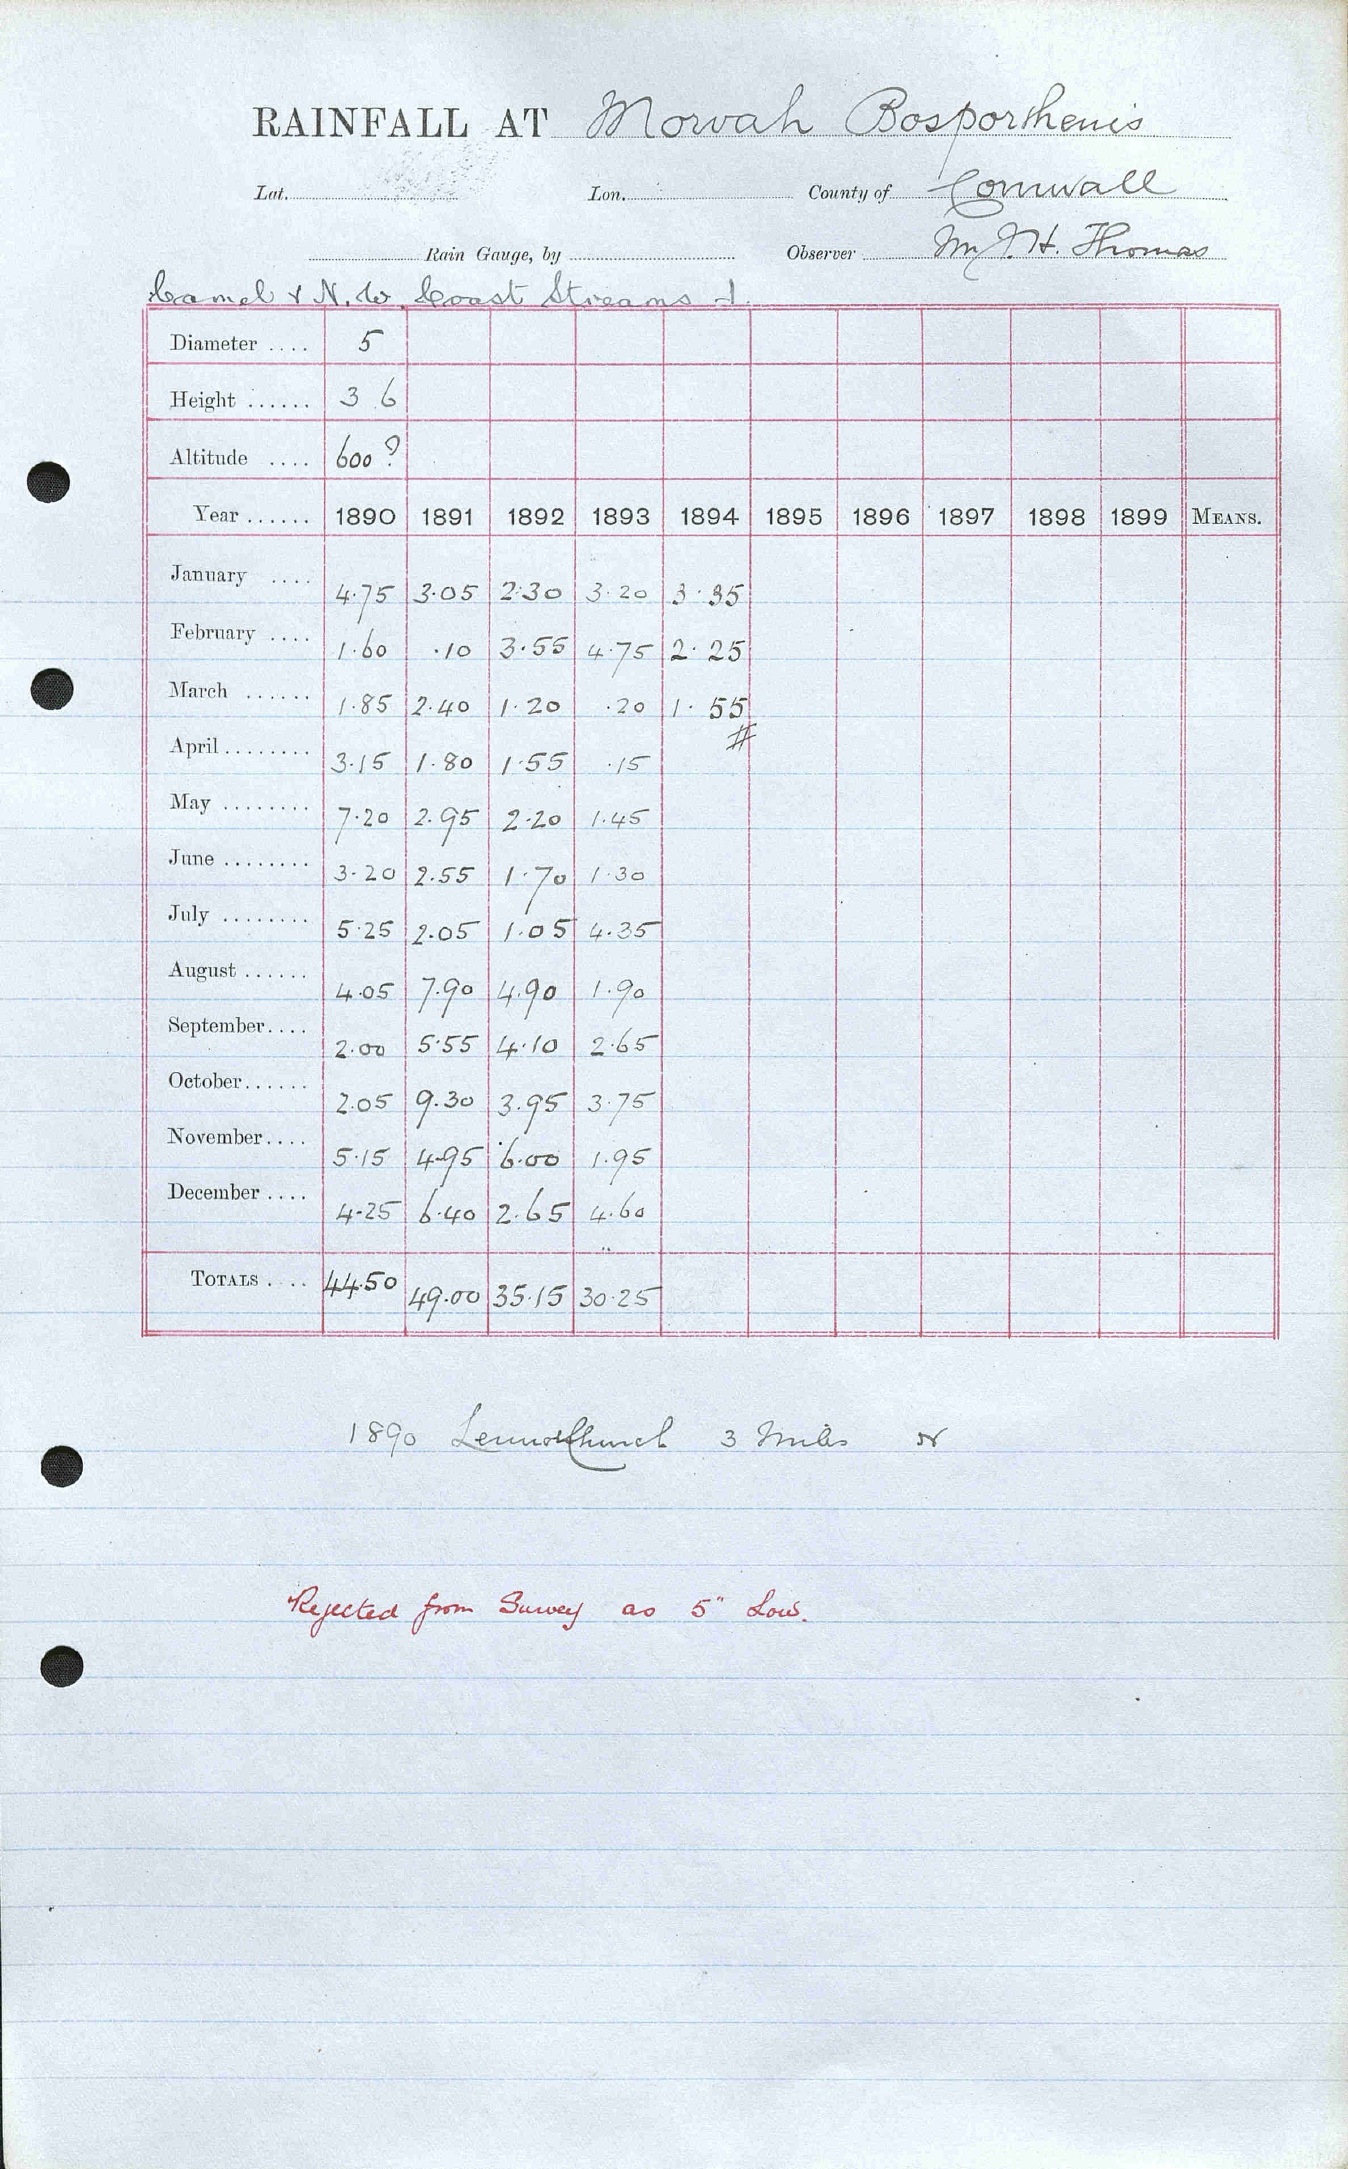 RAINFALL AT Morvah Bosporthenis
Lat. Lon. County of Cornwall
Rain Gauge, by Observer Mr J. H. Thomas
Camel & N. W. Coast Streams 1.
Diameter .... 5
Height ...... 3 6
Altitude .... 600 ?
Year ...... 1890 1891 1892 1893 1894 1895 1896 1897 1898 1899 MEANS.
January .... 4.75 3.05 2.30 3.20 3.35
February .... 1.60 .10 3.55 4.75 2.25
March ...... 1.85 2.40 1.20 .20 1.55
April ........ 3.15 1.80 1.55 .15 #
May ........ 7.20 2.95 2.20 1.45
June ........ 3.20 2.55 1.70 1.30
July ........ 5.25 2.05 1.05 4.35
August ...... 4.05 7.90 4.90 1.90
September.... 2.00 5.55 4.10 2.65
October...... 2.05 9.30 3.95 3.75
November.... 5.15 4.95 6.00 1.95
December .... 4.25 6.40 2.65 4.60
TOTALS .... 44.50 49.00 35.15 30.25
1890 3 Miles
Rejected from Survey as 5" Low.